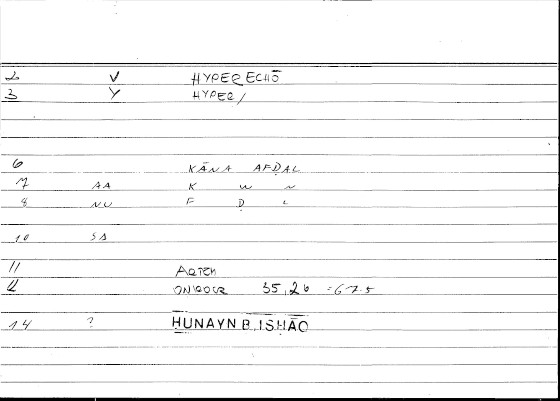 2 V HYPERECHŌ
3 Y HYPER/
6 KĀNA AFḌAL
7 AA K W N
8 NU F Ḍ L
10 SA
11 ARTEM
12 ONIROCR 35,26 =67.5
14 ? ḤUNAYN B.ISḤĀQ